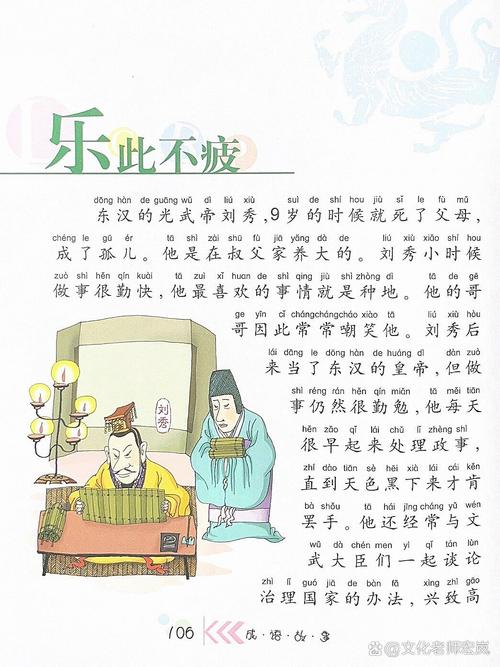 乐此不疲
dōng hàn de guāng wǔ dì liú xiù suì de shí hou jiù sǐ le fù mǔ
东汉的光武帝刘秀，9岁的时候就死了父母，
chéng le gū ér tā shì zài shū fù jiā yǎng dà de liú xiù xiǎo shí hou
成了孤儿。他是在叔父家养大的。刘秀小时候
zuò shì hěn qín kuài tā zuì xǐ huan de shì qing jiù shì zhòng dì tā de gē
做事很勤快，他最喜欢的事情就是种地。他的哥
ge yīn cǐ cháng cháng cháo xiào tā liú xiù hòu
哥因此常常嘲笑他。刘秀后
lái dāng le dōng hàn de huáng dì dàn zuò
来当了东汉的皇帝，但做
shì réng rán hěn qín miǎn tā měi tiān
事仍然很勤勉，他每天
hěn zǎo qǐ lái chǔ lǐ zhèng shì
很早起来处理政事，
zhí dào tiān sè hēi xià lái cái kěn
直到天色黑下来才肯
bà shǒu tā hái jīng cháng yǔ wén
罢手。他还经常与文
wǔ dà chén men yì qǐ tán lùn
武大臣们一起谈论
zhì lǐ guó jiā de bàn fǎ xìng zhì gāo
治理国家的办法，兴致高
刘秀
106 成·语·故·事
@文化老师宏岚